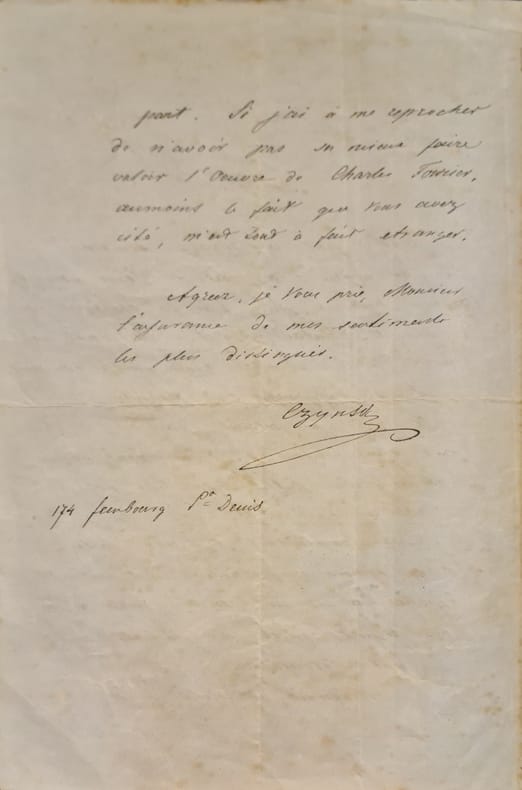 part. Si j'ai à me reprocher
de n'avoir pas su mieux faire
valoir l'Oeuvre de Charles Fourier,
aumoins le fait que vous avez
cité, m'est tout à fait etranger.
Agreez, je vous prie, Monsieur
l'assurance de mes sentiments
les plus distingués.
Czynski
174 faubourg St Denis